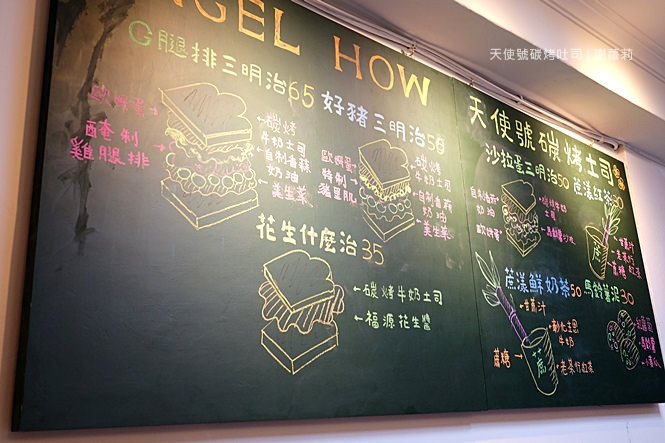 天使號碳烤吐司
NGEL HOW
G腿排三明治65
歐姆蛋
醃制
雞腿排
碳烤
牛奶土司
自制香蒜
奶油
美生菜
好豬三明治50
歐姆蛋
特制
豬里肌
碳烤
牛奶土司
自制香蒜
奶油
美生菜
花生什麼治35
碳烤牛奶土司
福源花生醬
天使號碳烤土司
沙拉蛋三明治50
奶油
土司
蔗漾紅茶
甘蔗汁
紅茶
蔗糖
蔗
蔗漾鮮奶茶50
甘蔗汁
牛奶
老茶行紅茶
蔗糖
蔗
馬鈴薯泥30